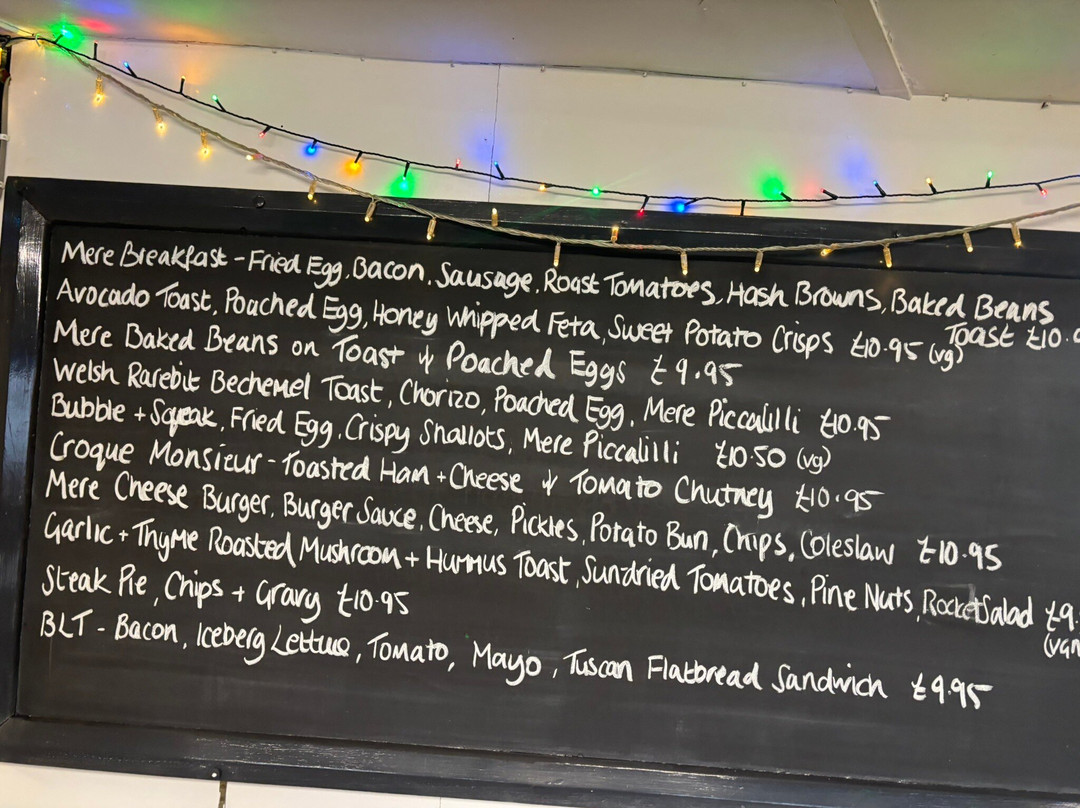 Mere Breakfast - Fried Egg, Bacon, Sausage, Roast Tomatoes, Hash Browns, Baked Beans
Toast £10.
Avocado Toast, Poached Egg, Honey Whipped Feta, Sweet Potato Crisps £10.95 (vg)
Mere Baked Beans on Toast & Poached Eggs £9.95
Welsh Rarebit Bechemel Toast, Chorizo, Poached Egg, Mere Piccalilli £10.95
Bubble + Squeak, Fried Egg, Crispy Shallots, Mere Piccalilli £10.50 (vg)
Croque Monsieur - Toasted Ham + Cheese & Tomato Chutney £10.95
Mere Cheese Burger, Burger Sauce, Cheese, Pickles, Potato Bun, Chips, Coleslaw £10.95
Garlic + Thyme Roasted Mushroom + Hummus Toast, Sundried Tomatoes, Pine Nuts, Rocket Salad £9.
(vgn
Steak Pie, Chips + Gravy £10.95
BLT - Bacon, Iceberg Lettuce, Tomato, Mayo, Tuscan Flatbread Sandwich £9.95